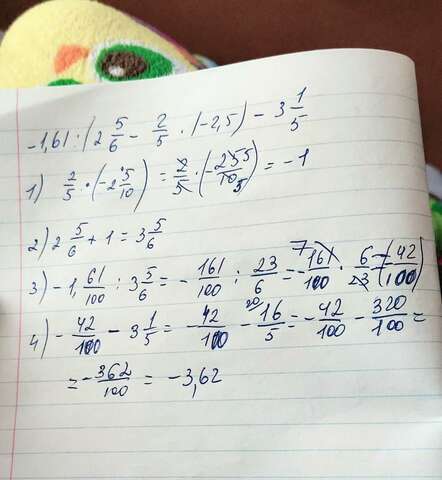 -1,61 : (2 5/6 - 2/5 · (-2,5) - 3 1/5
1) 2/5 · (-2 5/10) = 2/5 · (-255/105) = -1
2) 2 5/6 + 1 = 3 5/6
3) -1 61/100 : 3 5/6 = - 161/100 : 23/6 = - 7 161/100 · 6/23 = (- 42/100)
4) - 42/100 - 3 1/5 = - 42/100 - 20 16/5 = - 42/100 - 320/100 =
= - 362/100 = -3,62